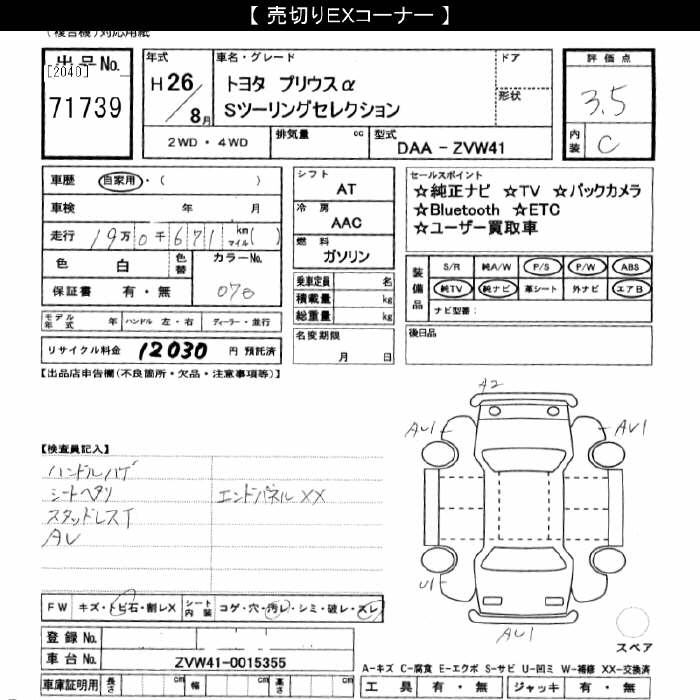 【 売切りEXコーナー 】
(複合機)対応用紙
出品No.
[2040]
71739
年式
H26/8月
車名・グレード
トヨタ プリウスα
Sツーリングセレクション
ドア
形状
評価点
3.5
内装
C
2WD・4WD
排気量 cc
型式
DAA - ZVW41
車歴 自家用・( )
車検 年 月
走行 19万0千671 km マイル( )
色 白
色替
カラーNo.
070
保証書 有・無
シフト
AT
冷房
AAC
燃料
ガソリン
乗車定員 名
積載量 kg
総重量 kg
セールスポイント
☆純正ナビ ☆TV ☆バックカメラ
☆Bluetooth ☆ETC
☆ユーザー買取車
装備品
S/R 純A/W P/S P/W ABS
純TV 純ナビ 革シート 外ナビ エアB
ナビ型番:
モデル年式 年 ハンドル 左・右 ディーラー・並行
リサイクル料金 12030 円 預託済
名変期限
月 日
後日品
【出品店申告欄(不良箇所・欠品・注意事項等)】
【検査員記入】
ハンドルハゲ
シートヘタリ
スタッドレスT
AU
エンドパネルXX
A2
AU1
AU1
U1
AU1
スペア
FW キズ・トビ石・割レX
シート内装 コゲ・穴・汚レ・シミ・破レ・スレ
登録No.
車台No. ZVW41-0015355
車庫証明用 長さ cm 幅 cm 高さ cm
A-キズ C-腐食 E-エクボ S-サビ U-凹ミ W-補修 XX-交換済
工具 有・無 ジャッキ 有・無